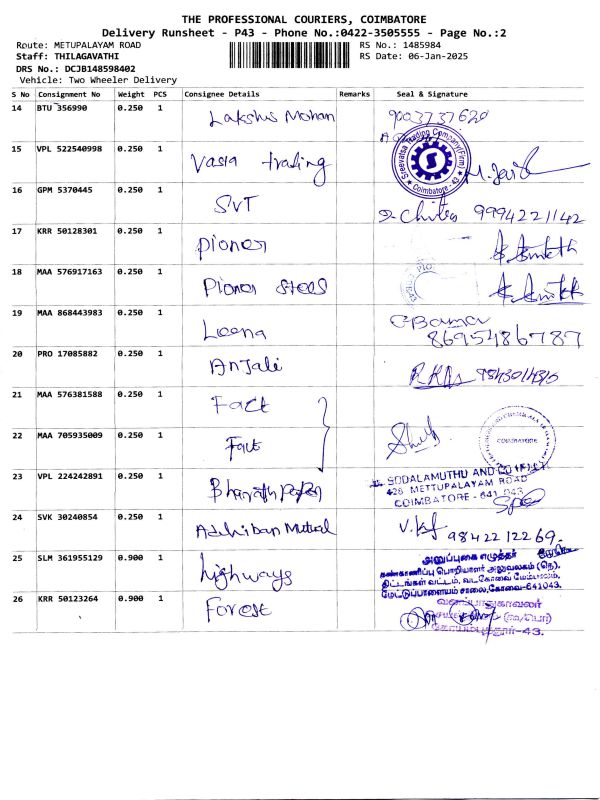 THE PROFESSIONAL COURIERS, COIMBATORE
Delivery Runsheet - P43 - Phone No.:0422-3505555 - Page No.:2
Route: METUPALAYAM ROAD
RS No.: 1485984
Staff: THILAGAVATHI
RS Date: 06-Jan-2025
DRS No.: DCJB148598402
Vehicle: Two Wheeler Delivery
S No Consignment No Weight PCS Consignee Details Remarks Seal & Signature
14 BTU 356990 0.250 1 Lakshis Mohan 9003737620
15 VPL 522540998 0.250 1 Vasia trading
Sreevatsa Trading Company(Firm)
Coimbatore - 43
16 GPM 5370445 0.250 1 SVT 9994221142
17 KRR 50128301 0.250 1 Pioner
18 MAA 576917163 0.250 1 Pioner Steel
19 MAA 868443983 0.250 1 Leena
8695486787
20 PRO 17085882 0.250 1 Anjali
21 MAA 576381588 0.250 1 Fact
22 MAA 705935009 0.250 1 Fact
COIMBATORE
23 VPL 224242891 0.250 1 Bharath Paper
SODALAMUTHU AND CO
428 METTUPALAYAM ROAD
COIMBATORE - 641 043
24 SVK 30240854 0.250 1 Adhiban Mutual 9842212269.
25 SLM 361955129 0.900 1 highways
அனுப்புகை எழுத்தர்
கண்காணிப்பு பொறியாளர் அலுவலகம் (நெ),
திட்டங்கள் வட்டம், வடகோவை மேம்பாலம்,
மேட்டுப்பாளையம் சாலை,கோவை-641043.
26 KRR 50123264 0.900 1 Forest
வனப்பாதுகாவலர்
கோயம்புத்தூர்-43.